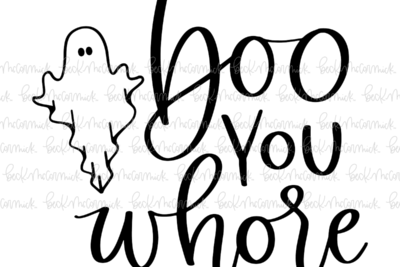 boo
YOU
whore